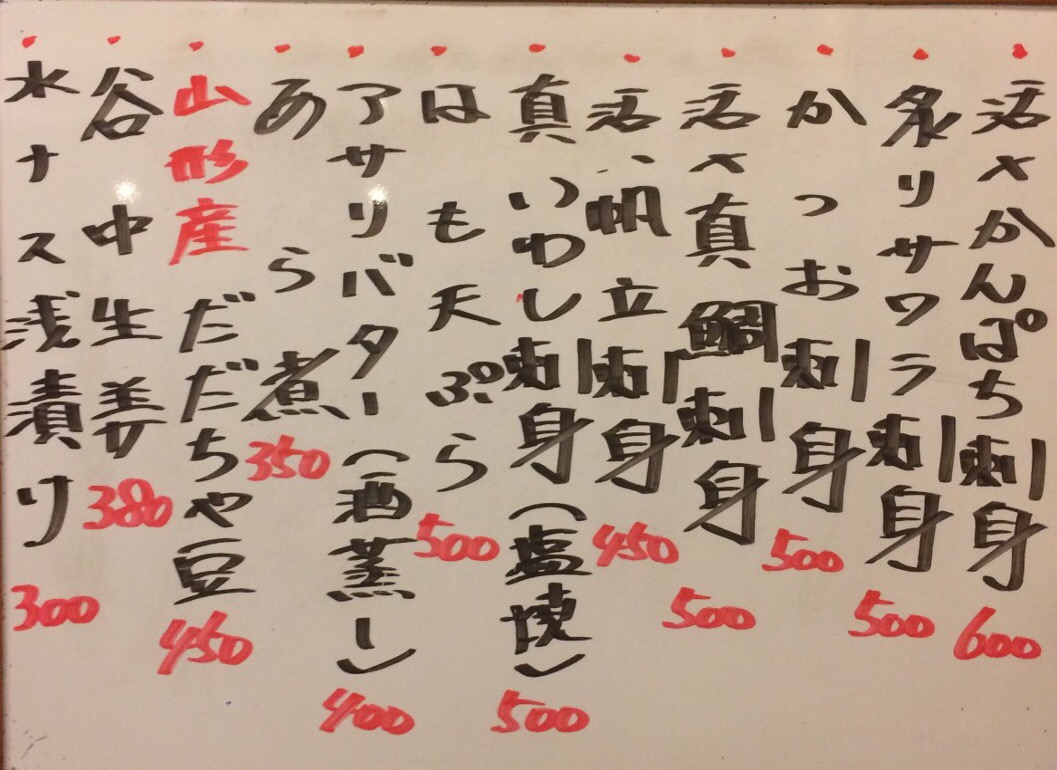 活〆かんぱち刺身 600
炙りサワラ刺身 500
かつお刺身 500
活〆真鯛刺身 500
活、帆立刺身 450
真いわし刺身(塩焼) 500
はも天ぷら 500
アサリバター(酒蒸し) 400
あら煮 350
山形産だだちゃ豆 450
谷中生姜 380
水ナス浅漬け 300